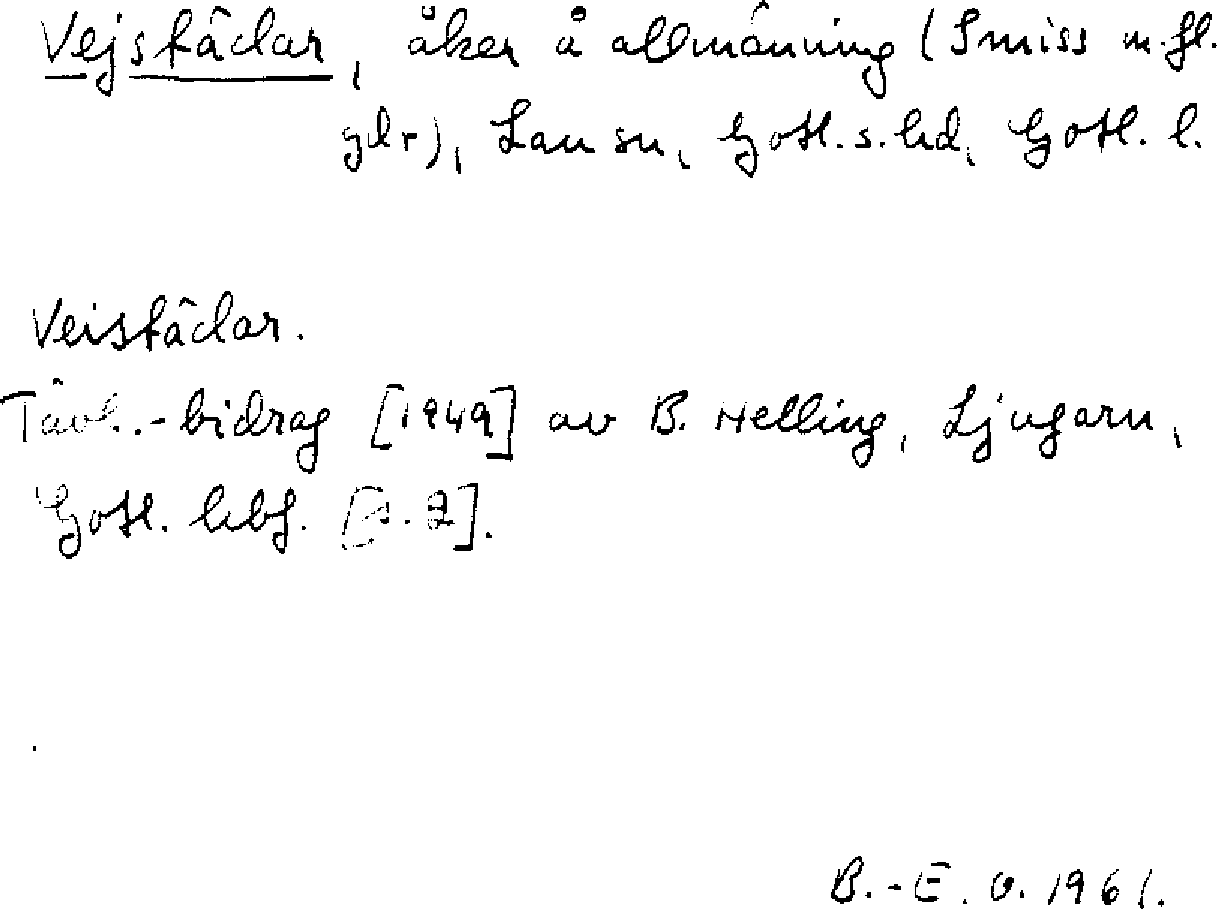 Vejstädar, åker å allmänning (Smiss m.fl.
gdr), Lau sn, Gotl. s. hd, Gotl. l.
Veistädar.
Tävl.-bidrag [1949] av B. Helling, Ljugarn,
Gotl. hbf. [s. 2].
B.-E. O. 1961.